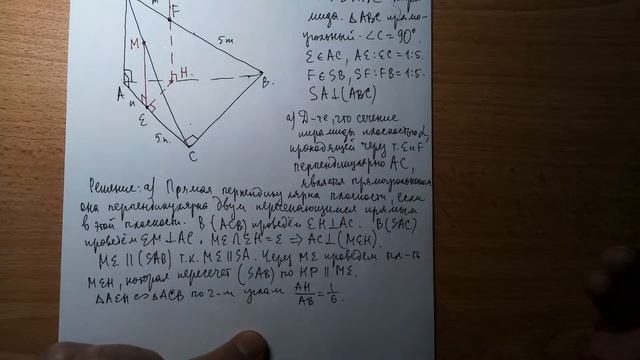 F
5m
M
H
A
B
n
E
5n
C
мида. △ABC прямо-
угольный. ∠C = 90°.
E∈AC, AE:EC = 1:5.
F∈SB, SF:FB = 1:5.
SA⊥(ABC)
а) Д-те, что сечение
пирамиды плоскостью α,
проходящей через т. E и F
перпендикулярно AC,
является прямоугольником
Решение: а) Прямая перпендикулярна плоскости, если
она перпендикулярна двум пересекающимся прямым
в этой плоскости. В (ACB) проведём EH⊥AC. В (SAC)
проведём EM⊥AC. ME∩EH = E ⇒ AC⊥(MEH).
ME ∥ (SAB) т.к. ME ∥ SA. Через ME проведем пл-ть
MEH, которая пересечет (SAB) по HP ∥ ME.
△AEH ∽ △ACB по 2-м углам AH/AB = 1/6.